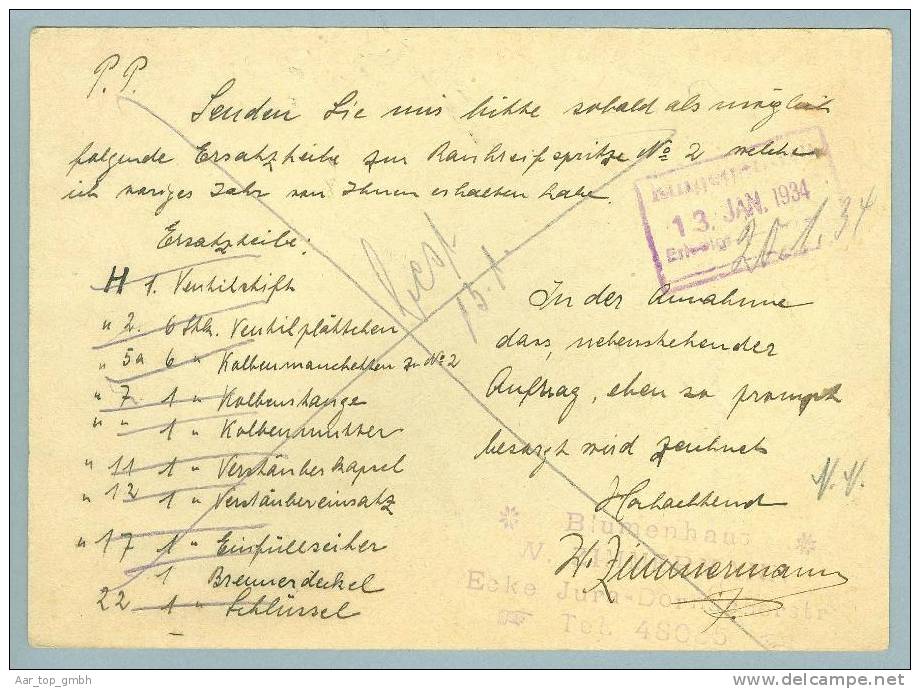 P. P.
Senden Sie mir bitte sobald als möglich
folgende Ersatzteile zur Rauhreifspritze No 2 welche
ich voriges Jahr von Ihnen erhalten habe.
13. JAN. 1934
20. 1. 34
Ersatzteile:
H 1. Ventilstift
" 2. 6 Stk. Ventilplättchen
" 5a 6 " Kolbenmanchetten zu No 2
" 7 1 " Kolbenstange
" " 1 " Kolbenmutter
" 11 1 " Verstäuberkapsel
" 12 1 " Verstäubereinsatz
" 17 1 " Einfüllseiher
1 Brennerdeckel
22 1 " Schlüssel
In der Annahme
dass, nebenstehender
Auftrag, eben so prompt
besorgt wird zeichnet
Hochachtend
W. Zimmermann
Blumenhaus
W. ZIMMERMANN
Ecke Jura-Dornacherstr
Tel. 48
Aar_top_gmbh
delcampe.net